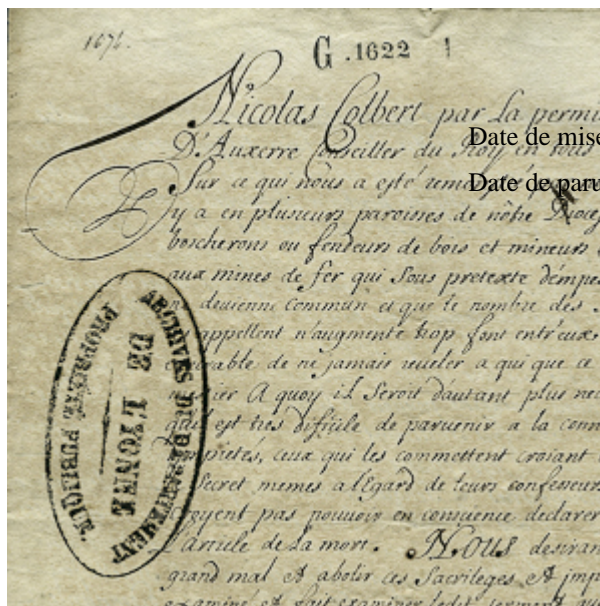 1671.
G. 1622
Nicolas Colbert par La permi
D'Auxerre Conseiller du Roy en tous
Date de mise
Sur ce qui nous a esté
Date de paru
y a en plusieurs paroisses de nôtre Dioce
boscherons ou fendeurs de bois et mineurs
aux mines de fer qui Sous pretexte d'empes
deuienne Commun et que le nombre des
appellent n'augmente trop font entr'eux
de ne jamais reueler a qui que ce
A quoy il Seroit d'autant plus nec
qu'il est tres difficile de paruenir a la conn
ceux qui les commettent croiant
Secret memes a l'Egard de leurs confesseurs
pas pouuoir en conscience declarer
L'article de la mort. NOUS desiran
grand mal et abolir ces Sacrileges et imp
Examiné et fait examiner ledit serment qu
ARCHIVES DU DÉPARTEMENT
DE L'YONNE
PROPRIÉTÉ PUBLIQUE